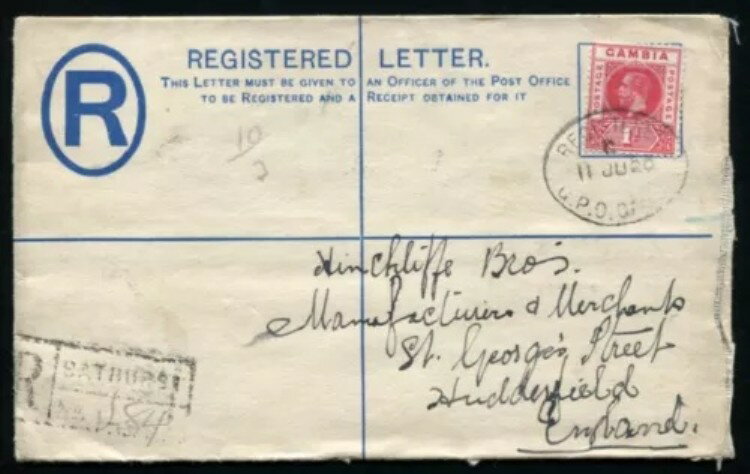 R
REGISTERED LETTER.
THIS LETTER MUST BE GIVEN TO AN OFFICER OF THE POST OFFICE
TO BE REGISTERED AND A RECEIPT OBTAINED FOR IT
GAMBIA
POSTAGE
POSTAGE
1D
10
2
11 JU 26
G.P.O.
Hinchliffe Bros.
Manufacturers & Merchants
St. George's Street
Huddersfield
England.
R
BATHURST
No.